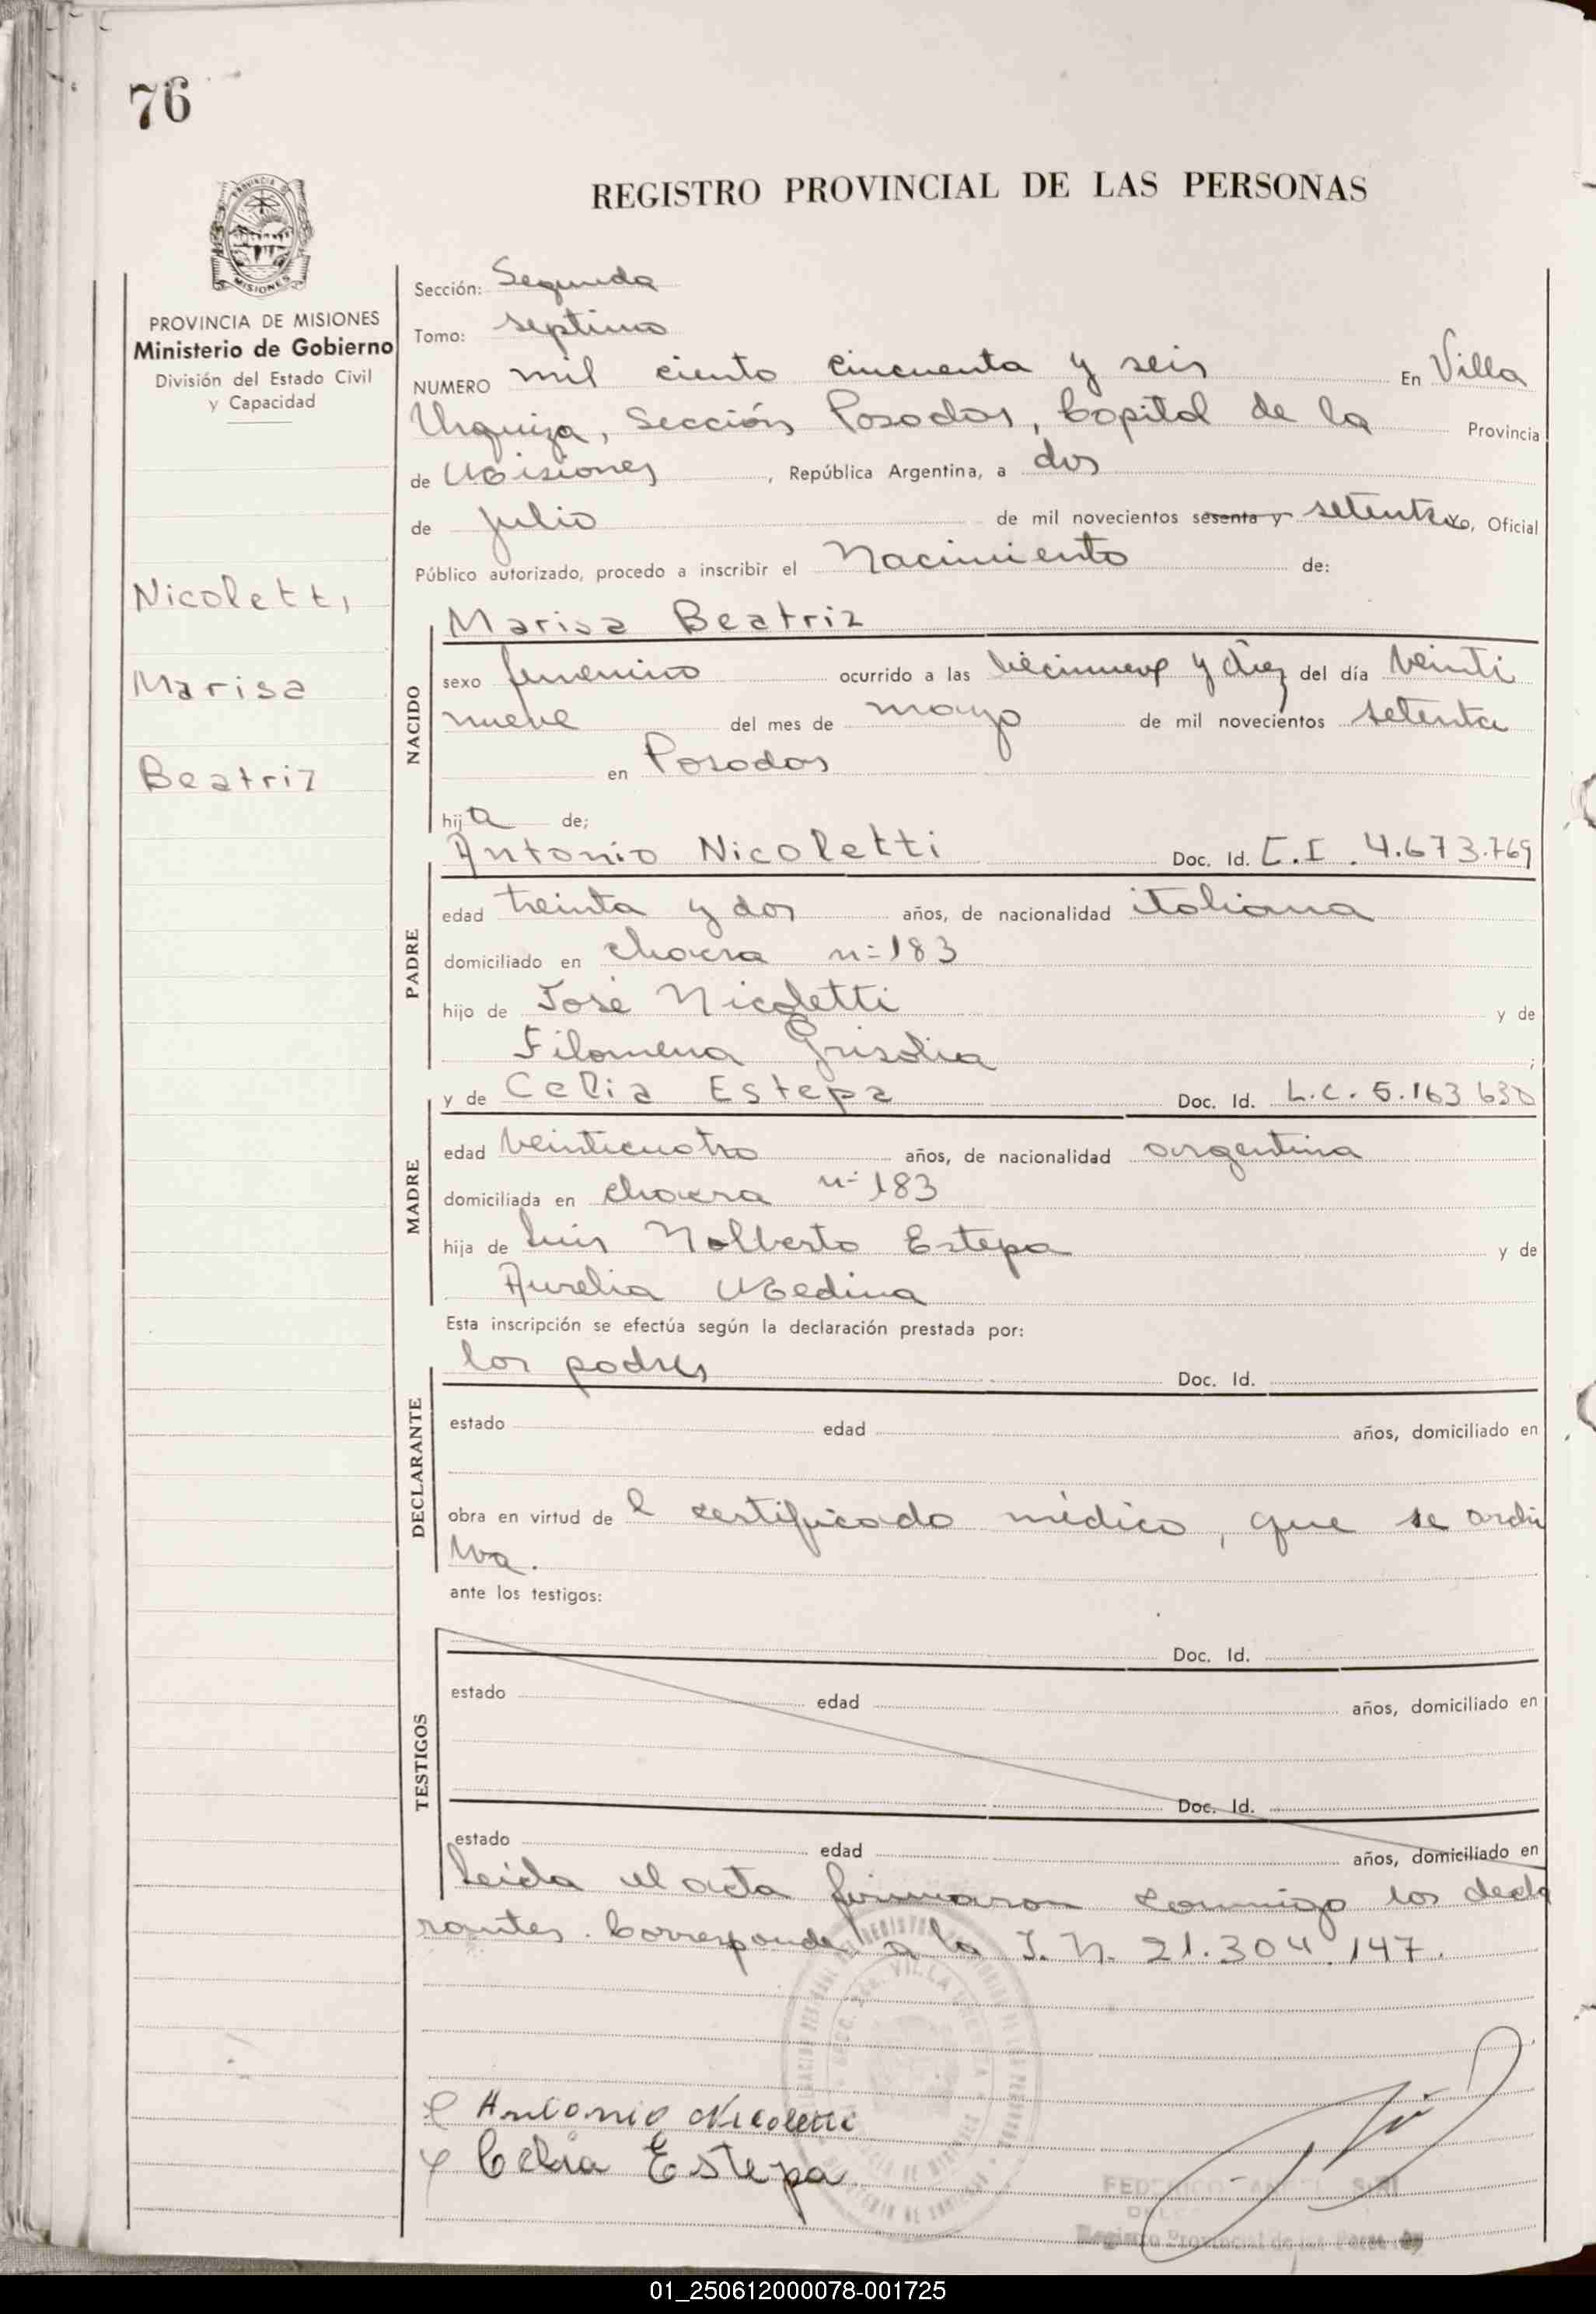 76
PROVINCIA DE
MISIONES
REGISTRO PROVINCIAL DE LAS PERSONAS
PROVINCIA DE MISIONES
Ministerio de Gobierno
División del Estado Civil
y Capacidad
Nicoletti,
Marisa
Beatriz
Sección: Segunda
Tomo: septimo
NUMERO mil ciento cincuenta y seis En Villa
Urquiza, Sección Posadas, Capital de la Provincia
de Misiones, República Argentina, a dos
de julio de mil novecientos sesenta y setenta, Oficial
Público autorizado, procedo a inscribir el Nacimiento de:
NACIDO
Marisa Beatriz
sexo femenino ocurrido a las diecinueve y diez del día veinti
nueve del mes de mayo de mil novecientos setenta
en Posadas
hija de;
PADRE
Antonio Nicoletti Doc. Id. C.I. 4.673.769
edad treinta y dos años, de nacionalidad italiana
domiciliado en chacra n= 183
hijo de José Nicoletti y de
Filomena Grisolia ;
MADRE
y de Celia Estepa Doc. Id. L.C. 5.163.630
edad veinticuatro años, de nacionalidad argentina
domiciliada en chacra n= 183
hija de Luis Nolberto Estepa y de
Aurelia Medina
Esta inscripción se efectúa según la declaración prestada por:
DECLARANTE
los padres Doc. Id.
estado edad años, domiciliado en
obra en virtud de l certificado médico, que se archi
va.
ante los testigos:
TESTIGOS
Doc. Id.
estado edad años, domiciliado en
Doc. Id.
estado edad años, domiciliado en
Leida el acta firmaron conmigo los decla
rantes. Corresponde a la I.N. 21.304.147.
Antonio Nicoletti
Celia Estepa
Registro Provincial de las
01_250612000078-001725